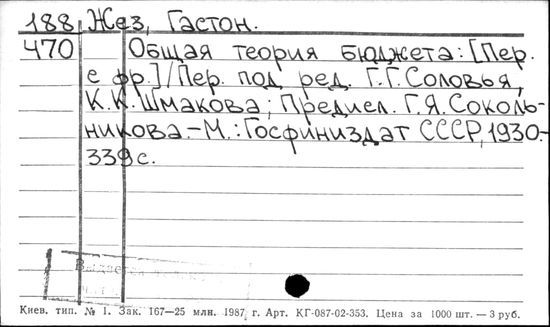 188 Жез, Гастон.
470 Общая теория бюджета: [Пер.
с фр.]/Пер. под ред. Г.Г.Соловья,
К.К.Шмакова; Предисл. Г.Я.Соколь-
никова.-М.: Госфиниздат СССР, 1930.-
339 с.
Выдается
Киев. тип. № 1. Зак. 167—25 млн. 1987 г. Арт. КГ-087-02-353. Цена за 1000 шт. — 3 руб.